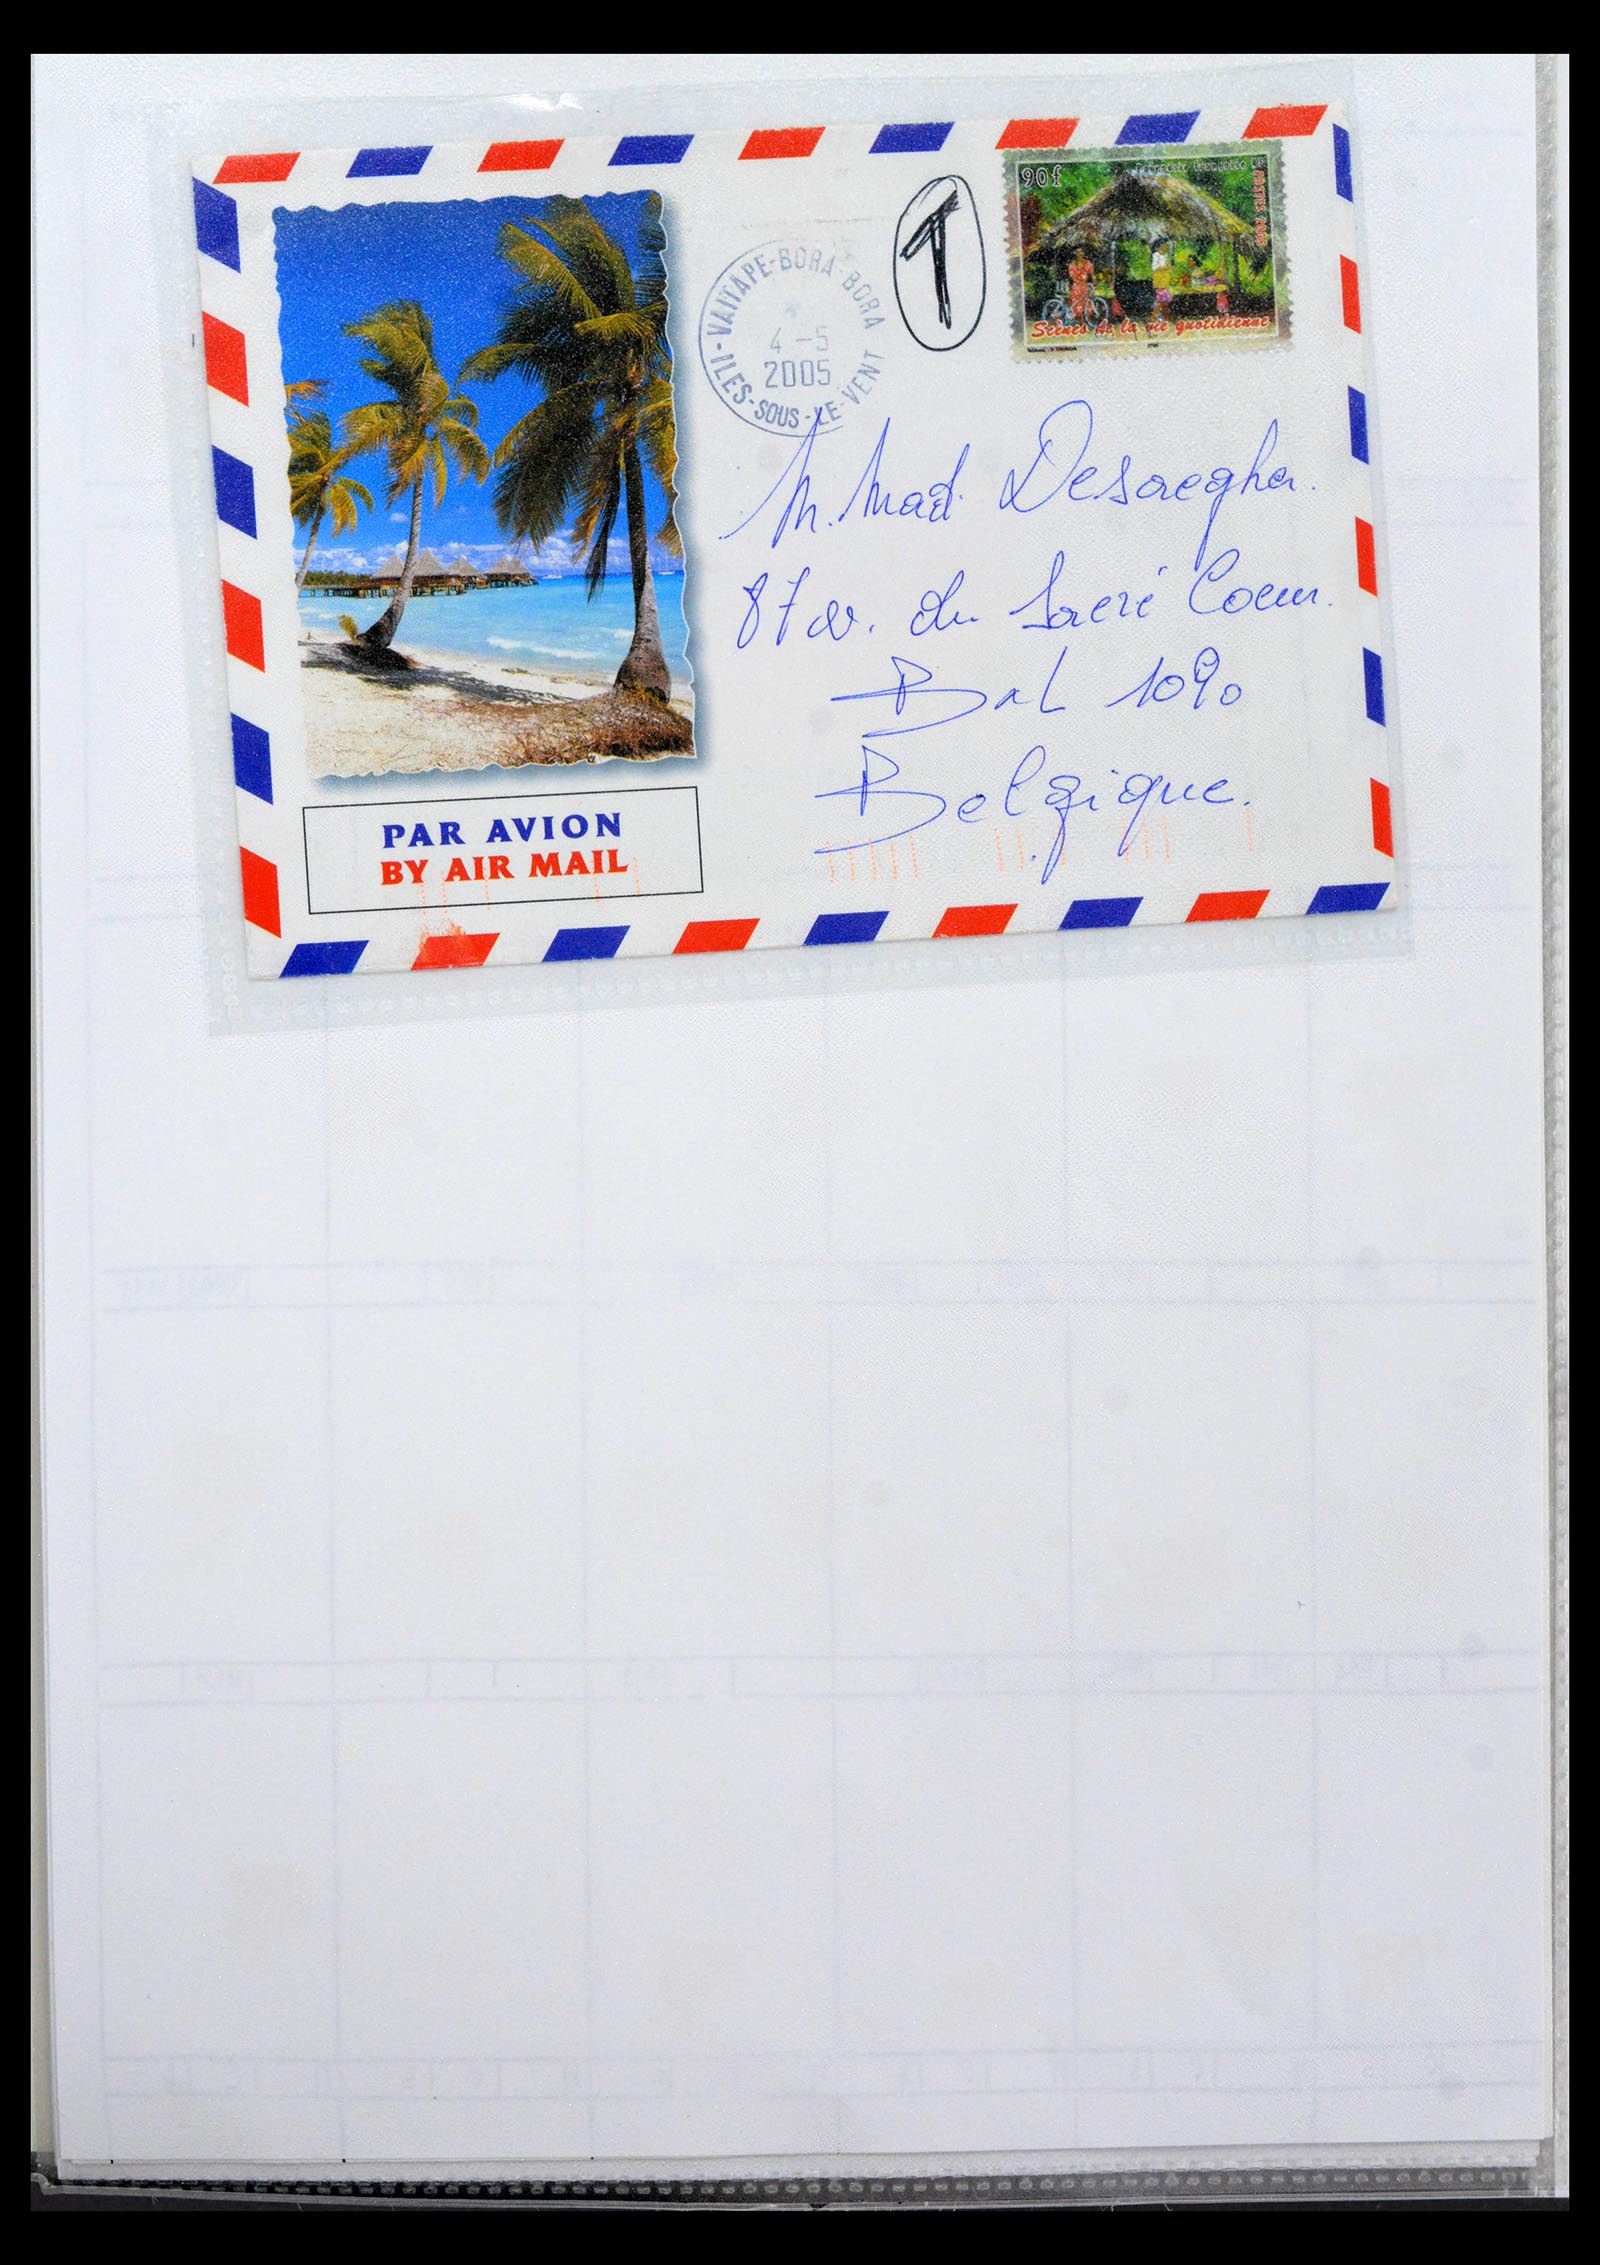 90f
Polynésie Française RF
POSTES 2005
Scènes de la vie quotidienne
T
VAITAPE-BORA-BORA
4-5
2005
ILES-SOUS-LE-VENT
M. Mad. Desaegher.
87 av. du Sacré Coeur.
Bxl 1090
Belgique.
PAR AVION
BY AIR MAIL